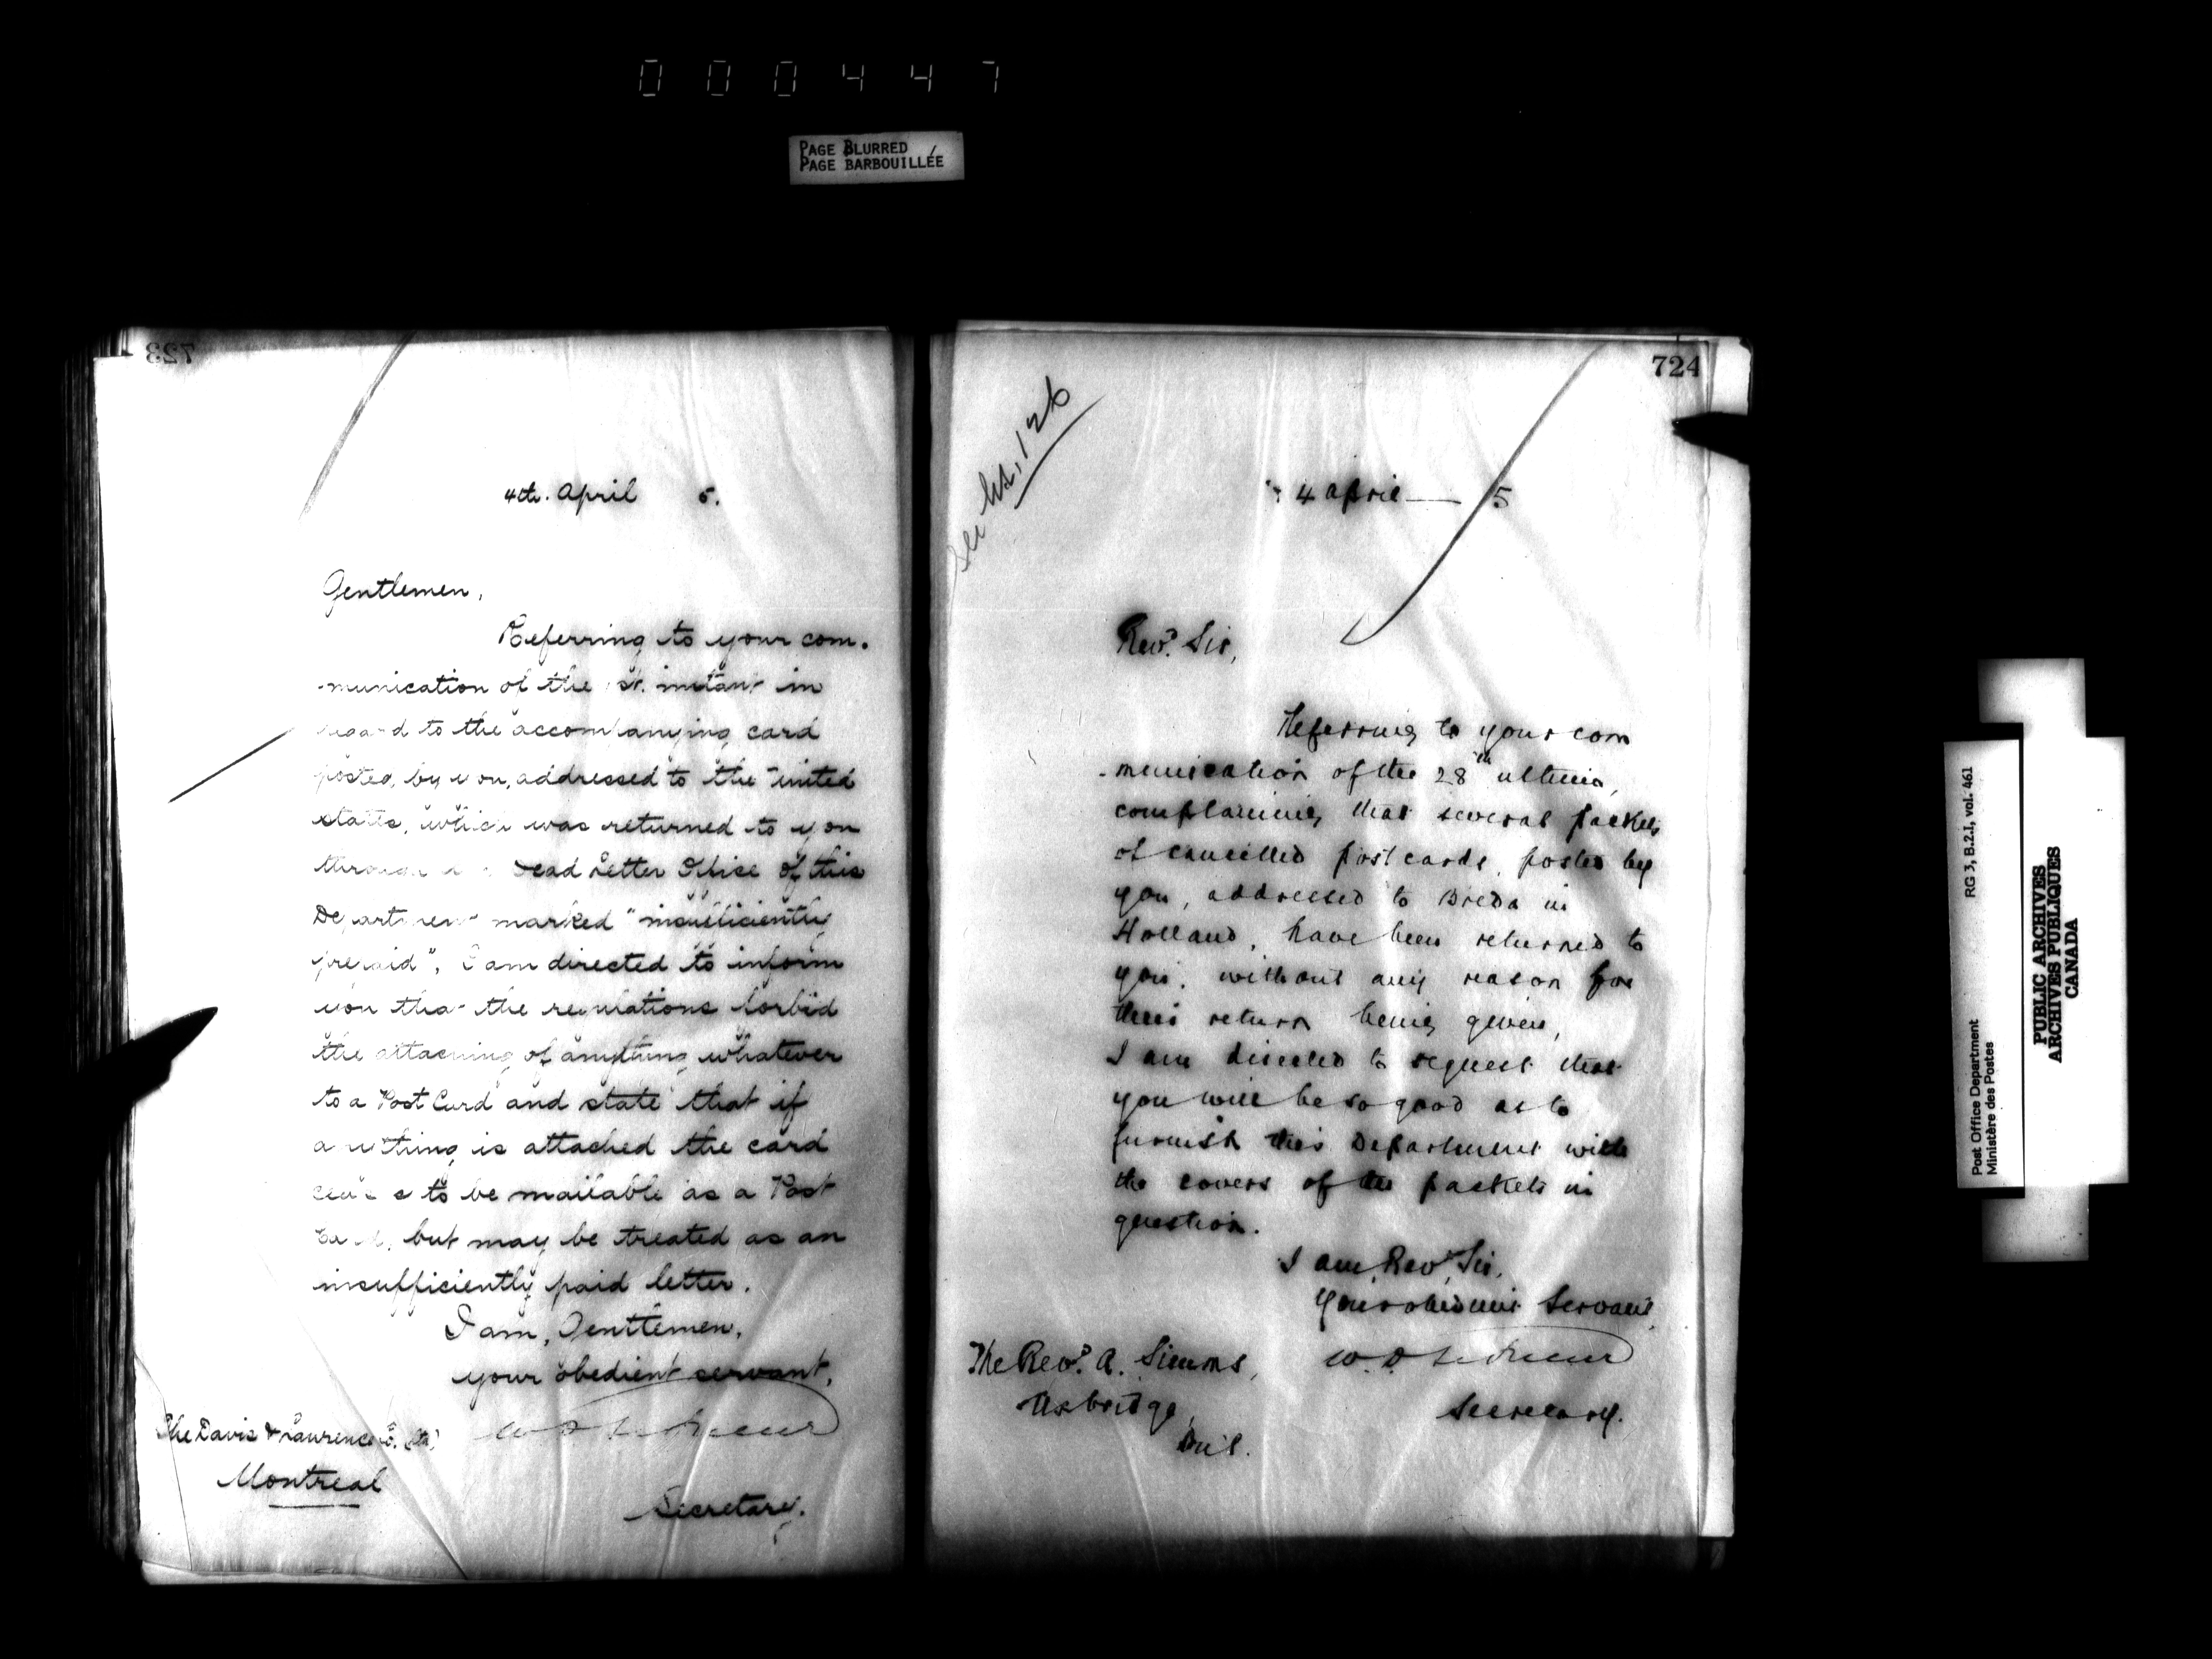 000447
PAGE BLURRED
PAGE BARBOUILLÉE
723
4th. April 5.
Gentlemen,
Referring to your com-
munication of the 1st. instant in
regard to the accompanying card
posted by you, addressed to the United
States, which was returned to you
through the Dead Letter Office of this
Department marked "insufficiently
prepaid", I am directed to inform
you that the regulations forbid
the attaching of anything whatever
to a Post Card and state that if
anything is attached the card
ceases to be mailable as a Post
Card, but may be treated as an
insufficiently paid letter.
I am, Gentlemen,
your obedient servant,
The Davis & Lawrence Co. Ltd,
Montreal
Secretary.
724
See 126
4 April 5
Revd. Sir,
Referring to your com
-munication of the 28th ultimo,
complaining that several packets
of cancelled post cards, posted by
you, addressed to Breda in
Holland, have been returned to
you, without any reason for
their return being given,
I am directed to request that
you will be so good as to
furnish this Department with
the covers of the packets in
question.
I am, Revd. Sir,
Your obedient Servant,
The Revd. A. Simms,
Uxbridge,
Ont.
Secretary.
Post Office Department
Ministère des Postes
RG 3, B.2.1, vol. 461
PUBLIC ARCHIVES
ARCHIVES PUBLIQUES
CANADA